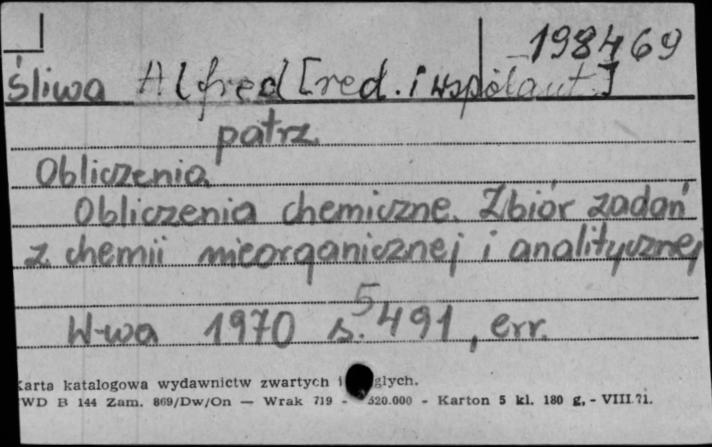 198469
Śliwa Alfred [red. i współaut.]
patrz
Obliczenia
Obliczenia chemiczne. Zbiór zadań
z chemii nieorganicznej i analitycznej
5
W-wa 1970 s. 491, err.
Karta katalogowa wydawnictw zwartych i ciągłych.
WD B 144 Zam. 869/Dw/On — Wrak 719 - 520.000 - Karton 5 kl. 180 g. - VIII.71.